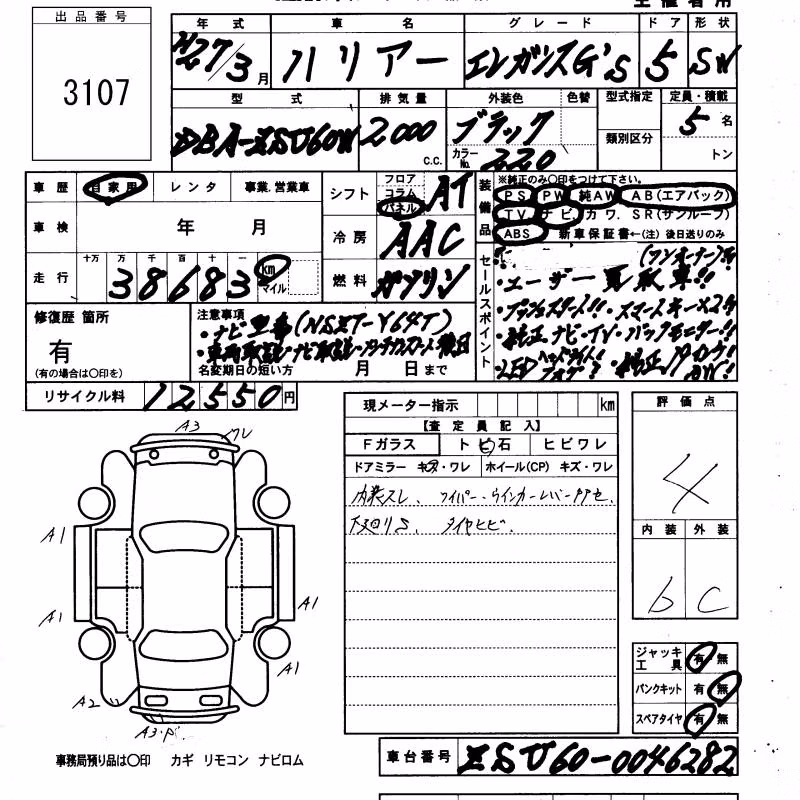 出品番号
3107
年式 車名 グレード ドア 形状
H27/3月 ハリアー エレガンスG's 5 SW
型式 排気量 外装色 色替 型式指定 定員・積載
DBA-ZSU60W 2000 c.c. ブラック 類別区分 5名
カラーNo. 220 トン
車歴 自家用 レンタ 事業.営業車
シフト フロア コラム パネル AT
装備品 ※純正のみ〇印をつけて下さい。
PS PW 純AW AB(エアバック)
TV ナビ カワ. SR(サンルーフ)
ABS 新車保証書←(注) 後日送りのみ
車検 年 月
冷房 AAC
走行 十万 万 千 百 十 一
38683 km マイル
燃料 ガソリン
セールスポイント
(ワンオーナー)
・ユーザー買取車!!
・プッシュスタート!!・スマートキー×2
・純正ナビ・TV・バックモニター!!
・LEDヘッドライト!
修復歴 箇所
有
(有の場合は〇印を)
注意事項
・ナビ型番(NSZT-Y64T)
・車両取説・ナビ取説・メンテナンスノート後日
名変期日の短い方 月 日まで
リサイクル料 12550円
現メーター指示 km
【査定員記入】
Fガラス トビ石 ヒビワレ
ドアミラー キズ・ワレ ホイール(CP) キズ・ワレ
内装スレ、ワイパー・ウインカーレバー
下廻りS、タイヤヒビ.
評価点
4
内装 外装
b C
A3 ワレ
A1
A1
A1
A1
A2
A3・P
ジャッキ工具 有 無
パンクキット 有 無
スペアタイヤ 有 無
車台番号 ZSU60-0046282
事務局預り品は〇印 カギ リモコン ナビロム